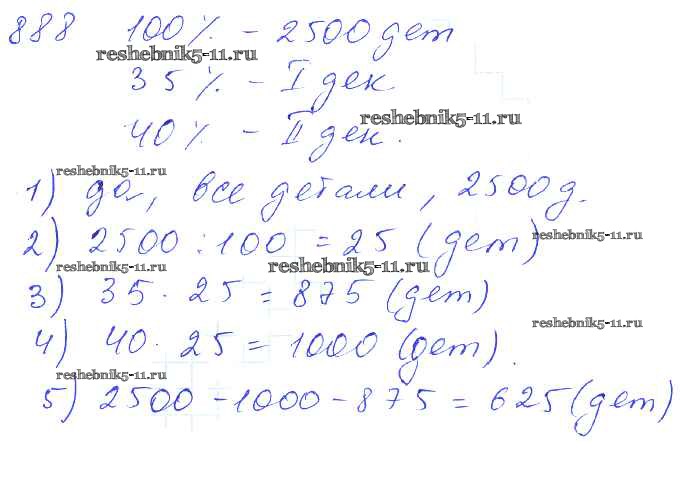 888 100% - 2500 дет
reshebnik5-11.ru
35% - I дек
reshebnik5-11.ru
40% - II дек.
reshebnik5-11.ru
1) да, все детали, 2500 д.
reshebnik5-11.ru
2) 2500 : 100 = 25 (дет)
reshebnik5-11.ru reshebnik5-11.ru
3) 35 · 25 = 875 (дет)
reshebnik5-11.ru
4) 40 · 25 = 1000 (дет).
reshebnik5-11.ru
5) 2500 - 1000 - 875 = 625 (дет)